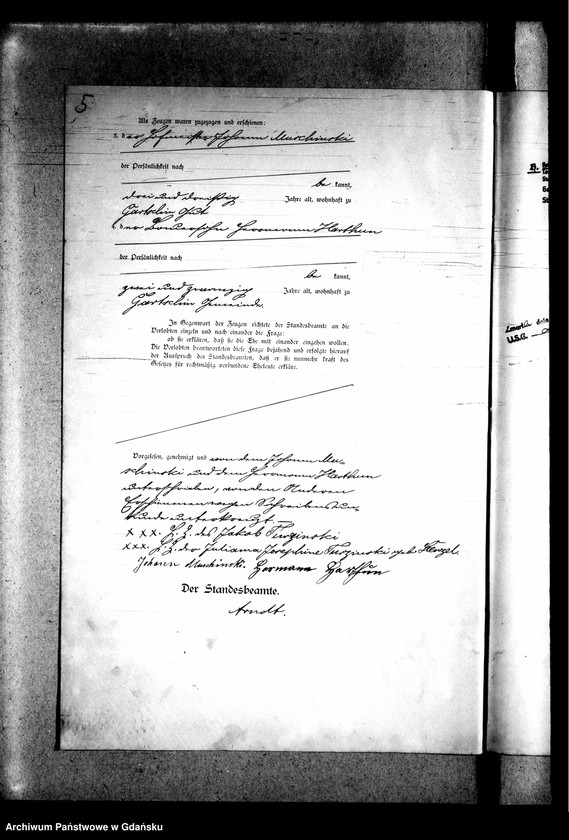 5
Als Zeugen waren zugezogen und erschienen:
3. der Hofmeister Johann Muschinski
der Persönlichkeit nach
be kannt,
drei und dreißig Jahre alt, wohnhaft zu
Gartschin Gut
4. der Bauersohn Hermann Harthun
der Persönlichkeit nach
be kannt,
zwei und zwanzig Jahre alt, wohnhaft zu
Gartschin Gemeinde.
In Gegenwart der Zeugen richtete der Standesbeamte an die
Verlobten einzeln und nach einander die Frage:
ob sie erklären, daß sie die Ehe mit einander eingehen wollen.
Die Verlobten beantworteten diese Frage bejahend und erfolgte hierauf
der Ausspruch des Standesbeamten, daß er sie nunmehr kraft des
Gesetzes für rechtmäßig verbundene Eheleute erkläre.
Vorgelesen, genehmigt und von dem Johann Mu-
schinski und dem Hermann Harthun
unterschrieben, von den Anderen
wegen Schreibensun-
kunde unterkreuzt.
x x x. H. Z. des Jakob Turzinski
x x x. H. Z. der Juliana Josephine Turzinski geb.
Johann Muschinski. Hermann Harthun
Der Standesbeamte.
Arndt.
B.
U.S.G.
Archiwum Państwowe w Gdańsku